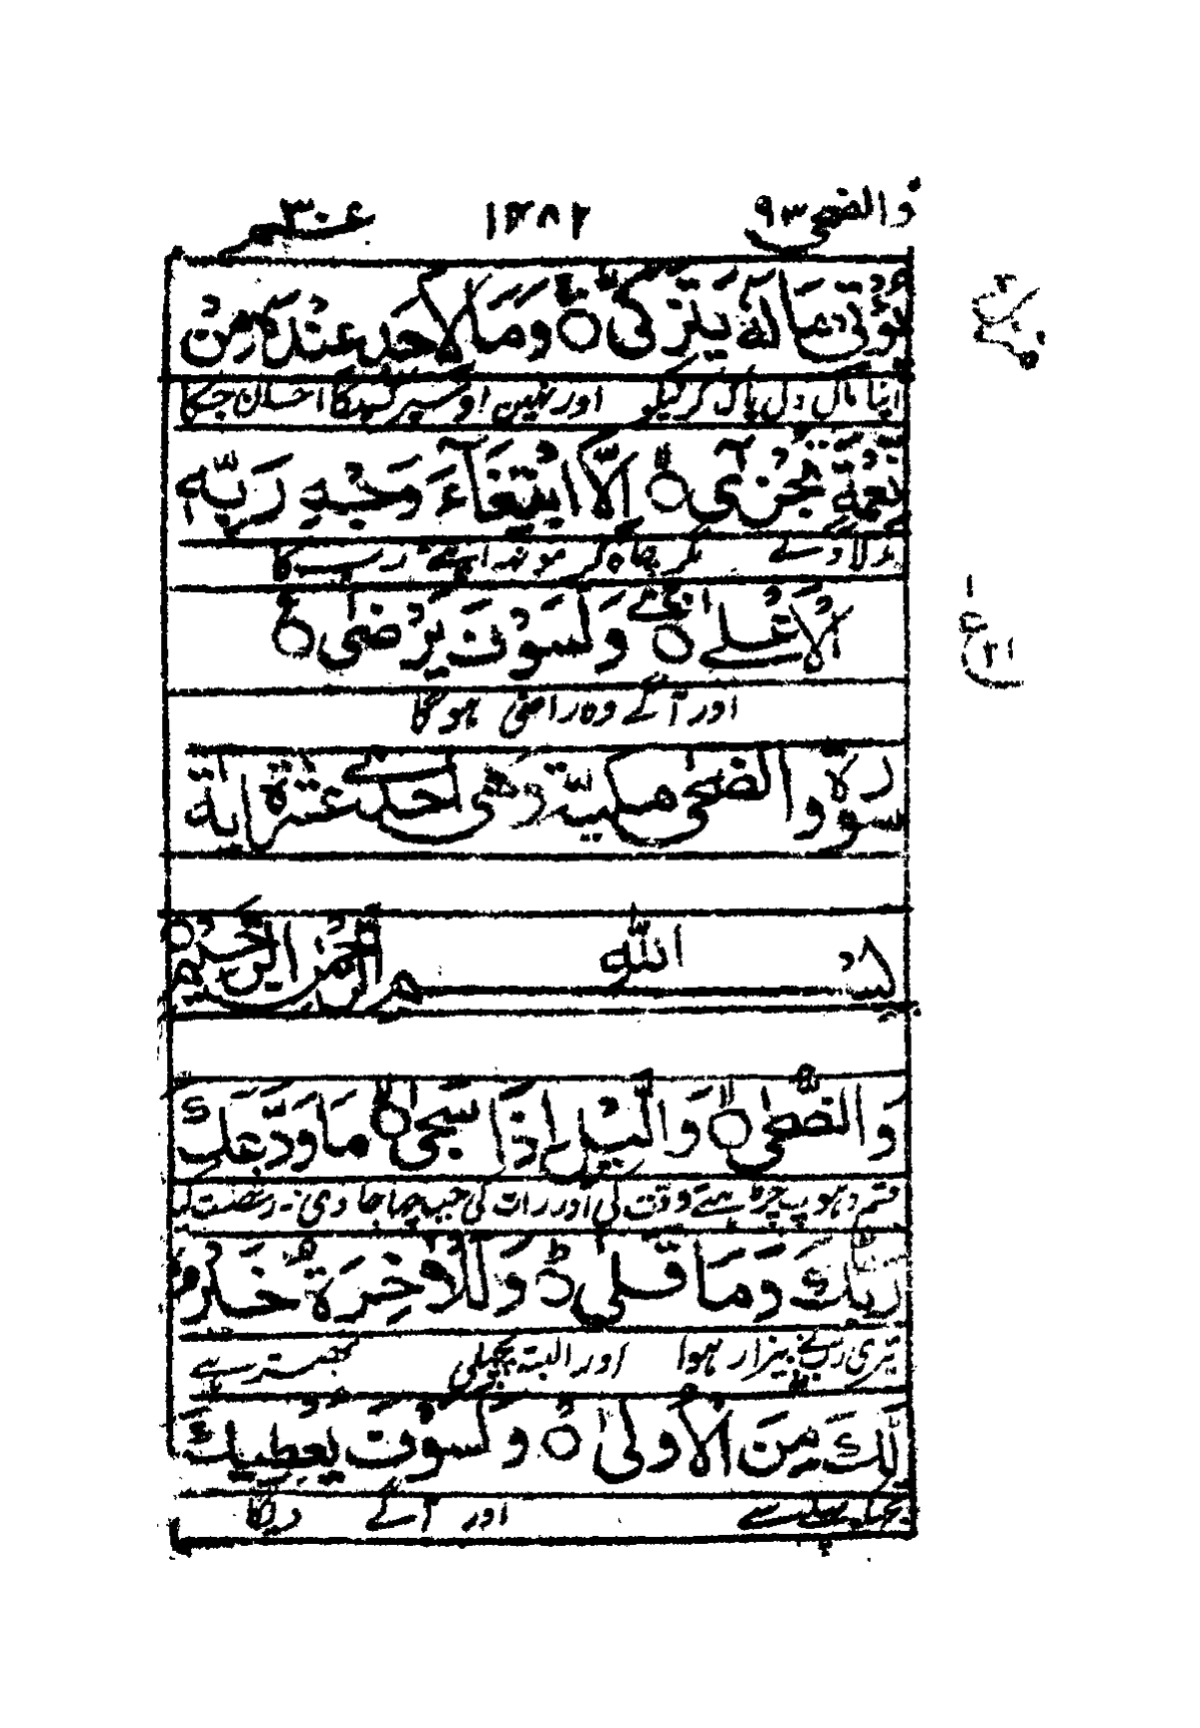 والضحى ٩٣ ١٢٨٢ عم ٣٠
يُؤْتِي مَالَهُ يَتَزَكّٰى ۝ وَمَا لِاَحَدٍ عِنْدَهٗ مِنْ
اپنا مال دل پاک کرنیکو اور نہین اوسپر کسیکا احسان جسکا
نِّعْمَةٍ تُجْزٰٓى ۝ اِلَّا ابْتِغَآءَ وَجْهِ رَبِّهِ
بدلا دے مگر چاہ کر مونہ اپنے رب کا
الْاَعْلٰى ۝ وَلَسَوْفَ يَرْضٰى ۝
اور آگے وہ راضی ہوگا
سورة والضحى مكية وهى احدى عشرة اية
بسم الله الرحمن الرحيم
وَالضُّحٰى ۝ وَالَّيْلِ اِذَا سَجٰى ۝ مَا وَدَّعَكَ
قسم دہوپ چڑہتے وقت کی اور رات کی جب چہا جاوی نہ رخصت کیا
رَبُّكَ وَمَا قَلٰى ۝ وَلَلْاٰخِرَةُ خَيْرٌ
تیری رب نے نہ بیزار ہوا اور البتہ پچہلی بہتر ہے
لَّكَ مِنَ الْاُوْلٰى ۝ وَلَسَوْفَ يُعْطِيْكَ
پہلی سے اور آگے دیگا
ع
٢١